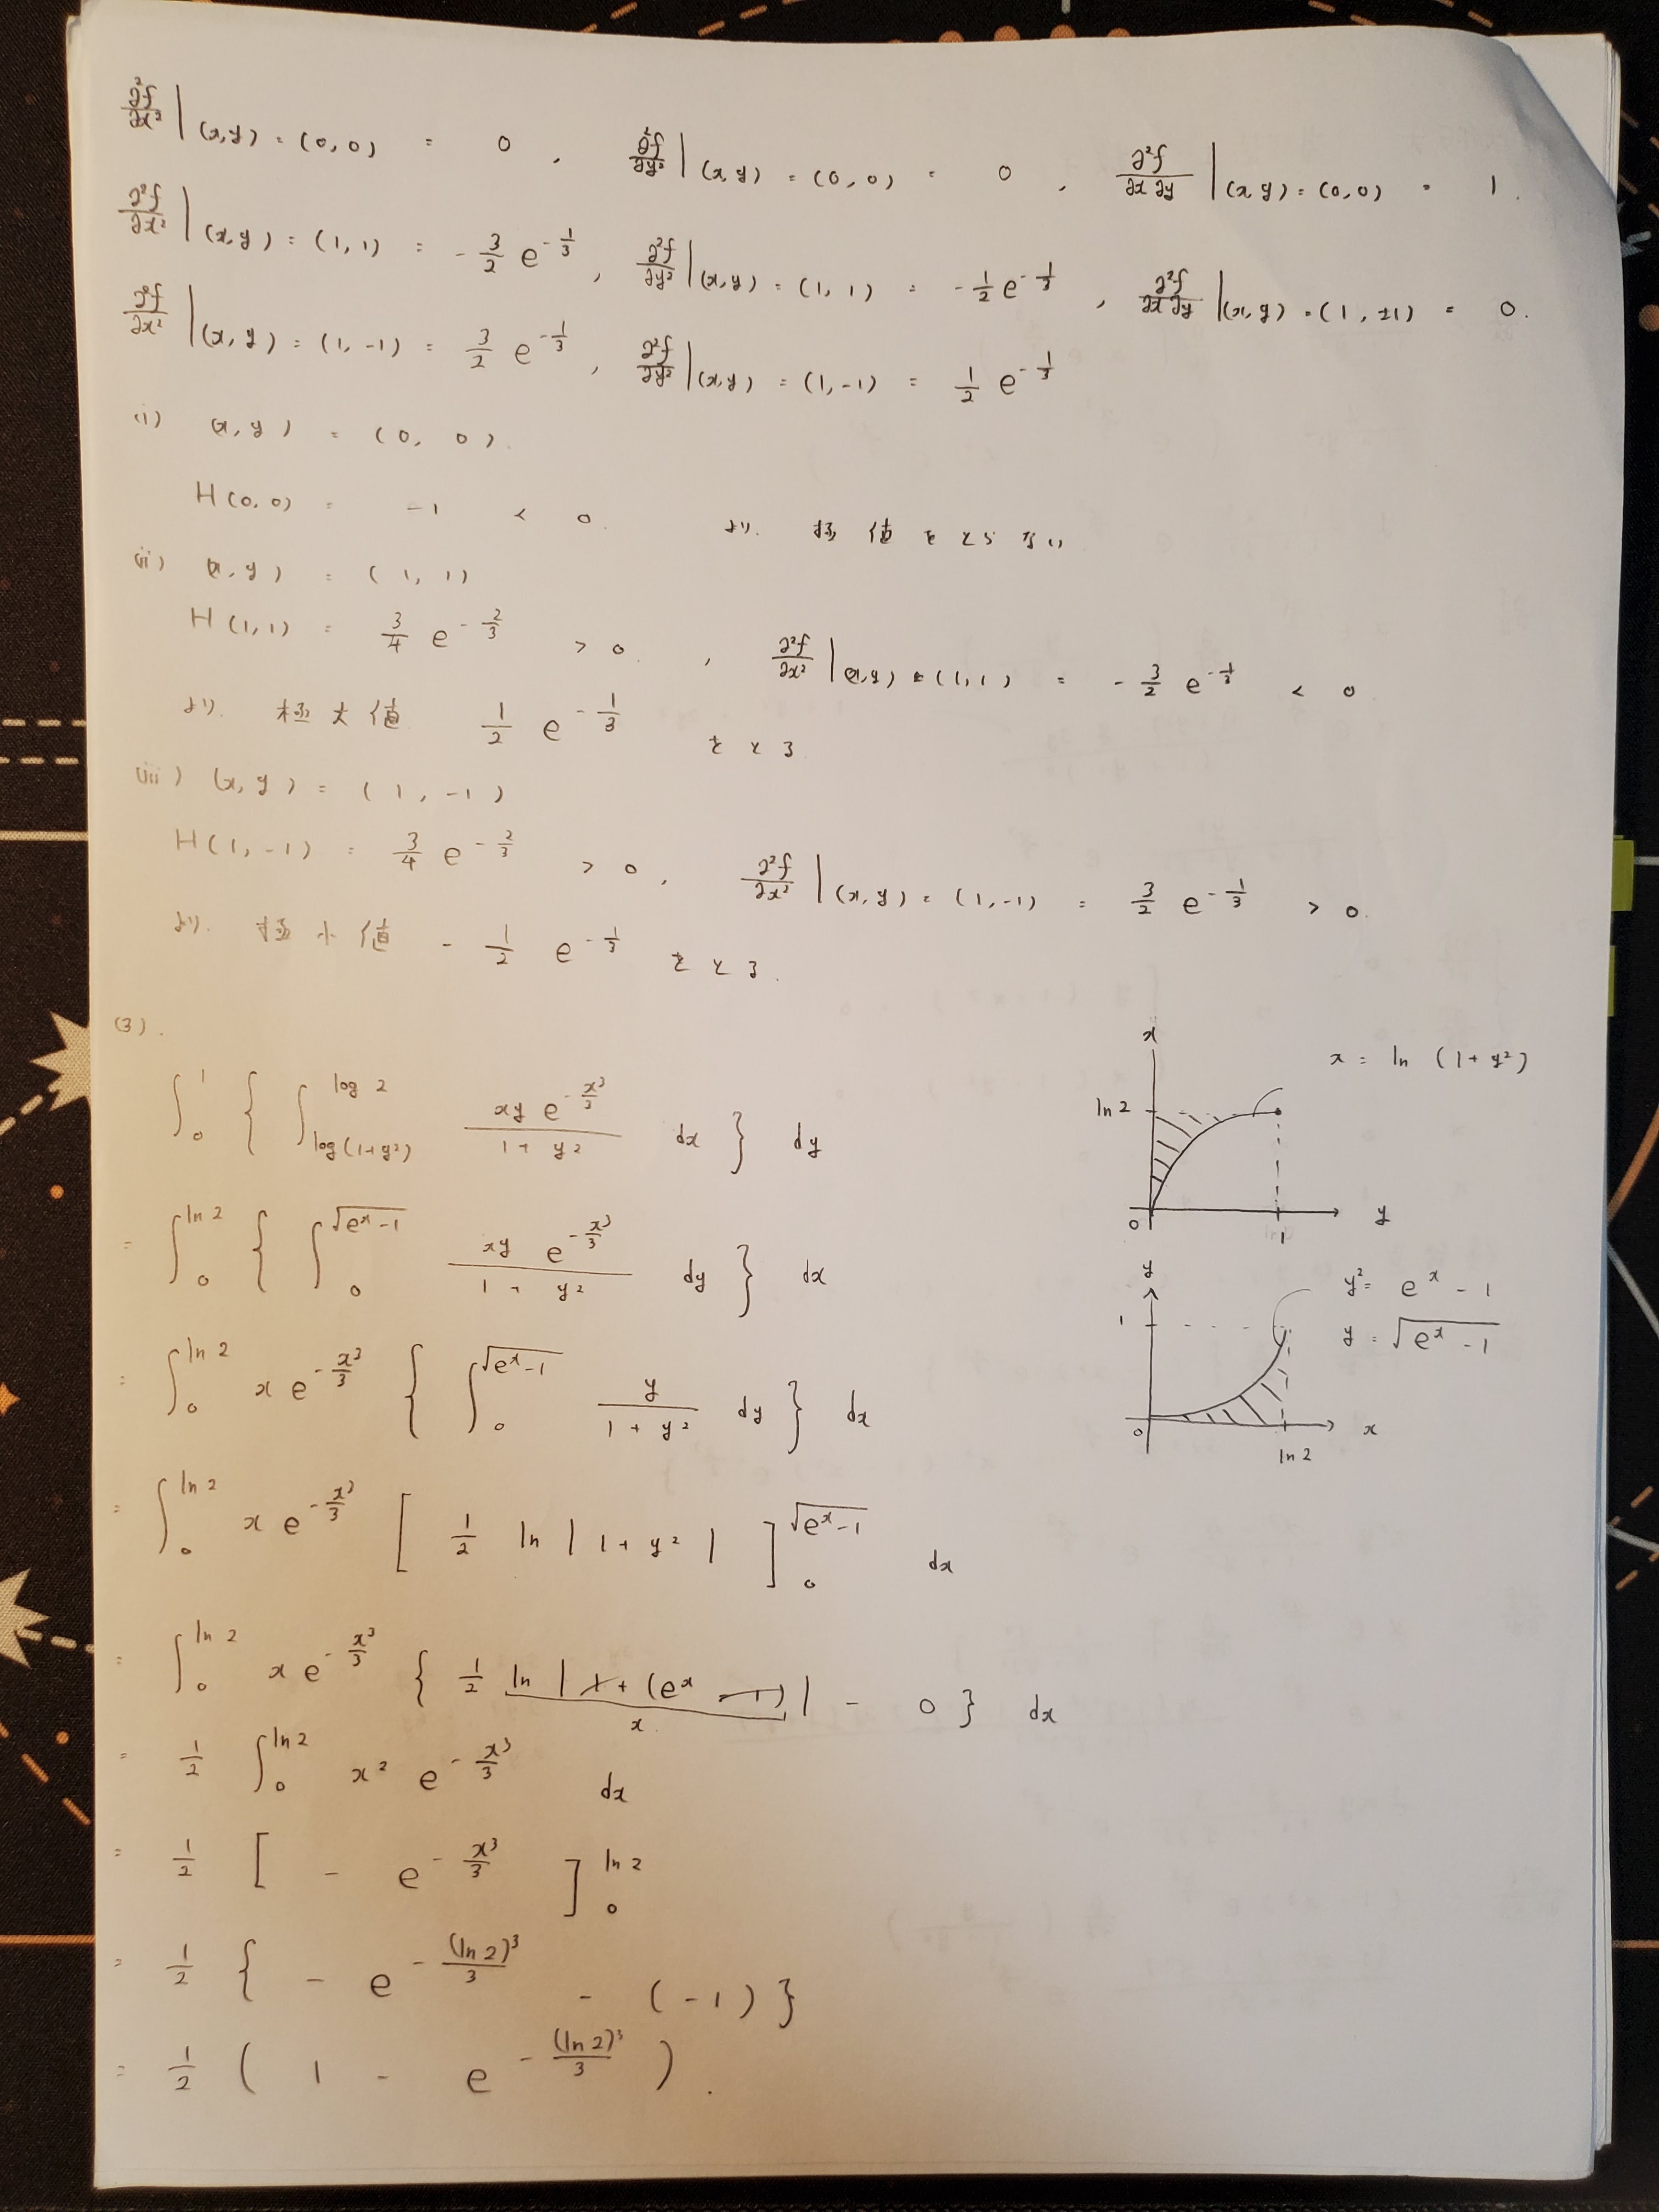 ∂²f/∂x² |(x,y)=(0,0) = 0 , ∂²f/∂y² |(x,y)=(0,0) = 0 , ∂²f/∂x∂y |(x,y)=(0,0) = 1.
∂²f/∂x² |(x,y)=(1,1) = -3/2 e^{-1/3} , ∂²f/∂y² |(x,y)=(1,1) = -1/2 e^{-1/3} , ∂²f/∂x∂y |(x,y)=(1,±1) = 0.
∂²f/∂x² |(x,y)=(1,-1) = 3/2 e^{-1/3} , ∂²f/∂y² |(x,y)=(1,-1) = 1/2 e^{-1/3}
(i) (x,y) = (0,0).
H(0,0) = -1 < 0. より. 極値をとらない
(ii) (x,y) = (1,1)
H(1,1) = 3/4 e^{-2/3} > 0. , ∂²f/∂x² |(x,y)=(1,1) = -3/2 e^{-1/3} < 0
より. 極大値 1/2 e^{-1/3} をとる.
(iii) (x,y) = (1,-1)
H(1,-1) = 3/4 e^{-2/3} > 0, ∂²f/∂x² |(x,y)=(1,-1) = 3/2 e^{-1/3} > 0.
より. 極小値 -1/2 e^{-1/3} をとる.
(3).
∫_0^1 { ∫_{log(1+y²)}^{log 2} xy e^{-x³/3} / (1+y²) dx } dy
= ∫_0^{ln 2} { ∫_0^{√(e^x-1)} xy e^{-x³/3} / (1+y²) dy } dx
= ∫_0^{ln 2} x e^{-x³/3} { ∫_0^{√(e^x-1)} y/(1+y²) dy } dx
= ∫_0^{ln 2} x e^{-x³/3} [ 1/2 ln |1+y²| ]_0^{√(e^x-1)} dx
= ∫_0^{ln 2} x e^{-x³/3} { 1/2 ln |1+(e^x-1)| - 0 } dx
x
= 1/2 ∫_0^{ln 2} x² e^{-x³/3} dx
= 1/2 [ -e^{-x³/3} ]_0^{ln 2}
= 1/2 { -e^{-(ln 2)³/3} - (-1) }
= 1/2 ( 1 - e^{-(ln 2)³/3} ).
x
x = ln (1+y²)
ln 2
0
1
y
y
y² = e^x - 1
1
y = √(e^x - 1)
0
ln 2
x